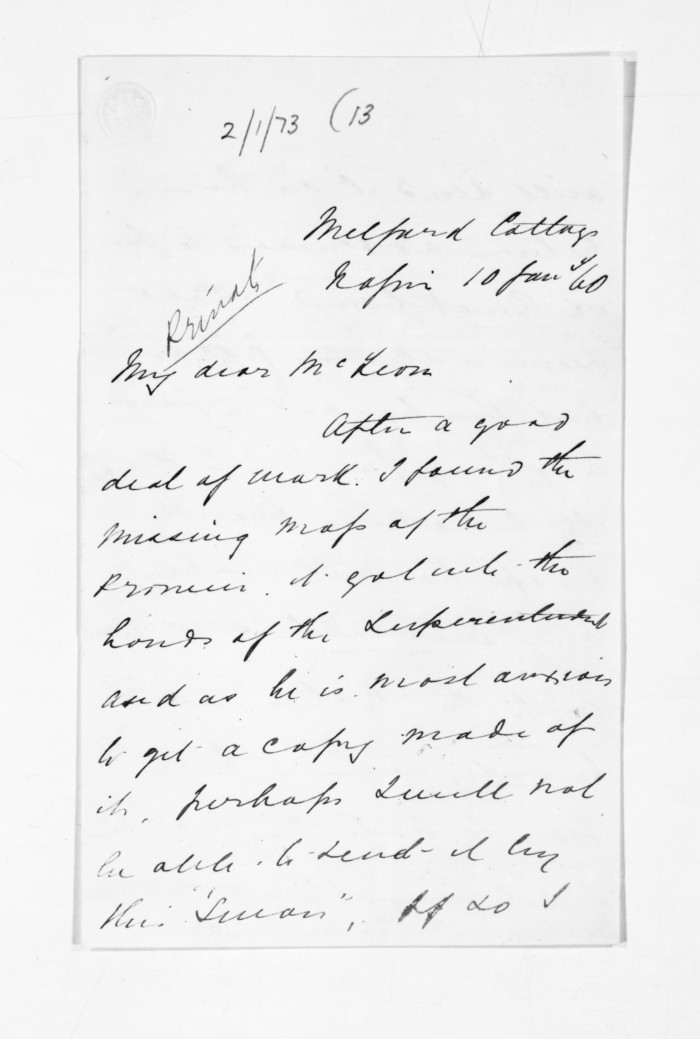 2/1/73 (13
Melford Cottage
Napier 10 Jany/60
Private
My dear McLean
After a good
deal of work. I found the
missing map of the
Province. it got into the
hands of the Superintendent
and as he is most anxious
to get a copy made of
it, perhaps I will not
be able to send it by
this "Swan", If so I